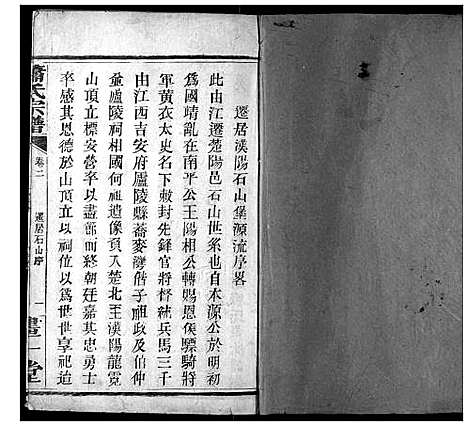 遷居漢陽石山堡源流序畧
此由江遷楚陽邑石山世系也自本源公於明初
為國靖亂在南平公王陽相公轉賜恩侯驃騎將
軍黃衣太史名下敕封先鋒官將督統兵馬三千
由江西吉安府廬陵縣蕎麥灣偕子祖政及伯仲
並廬陵祠相國何祖遺像頁入楚北王漢陽龍霓
山頂立標安營卒以盡部而終朝廷嘉其忠勇士
卒感其恩德於山頂立以祠位以為世世享祀迨
蕭氏宗譜
卷二
遷居石山序
一
堂